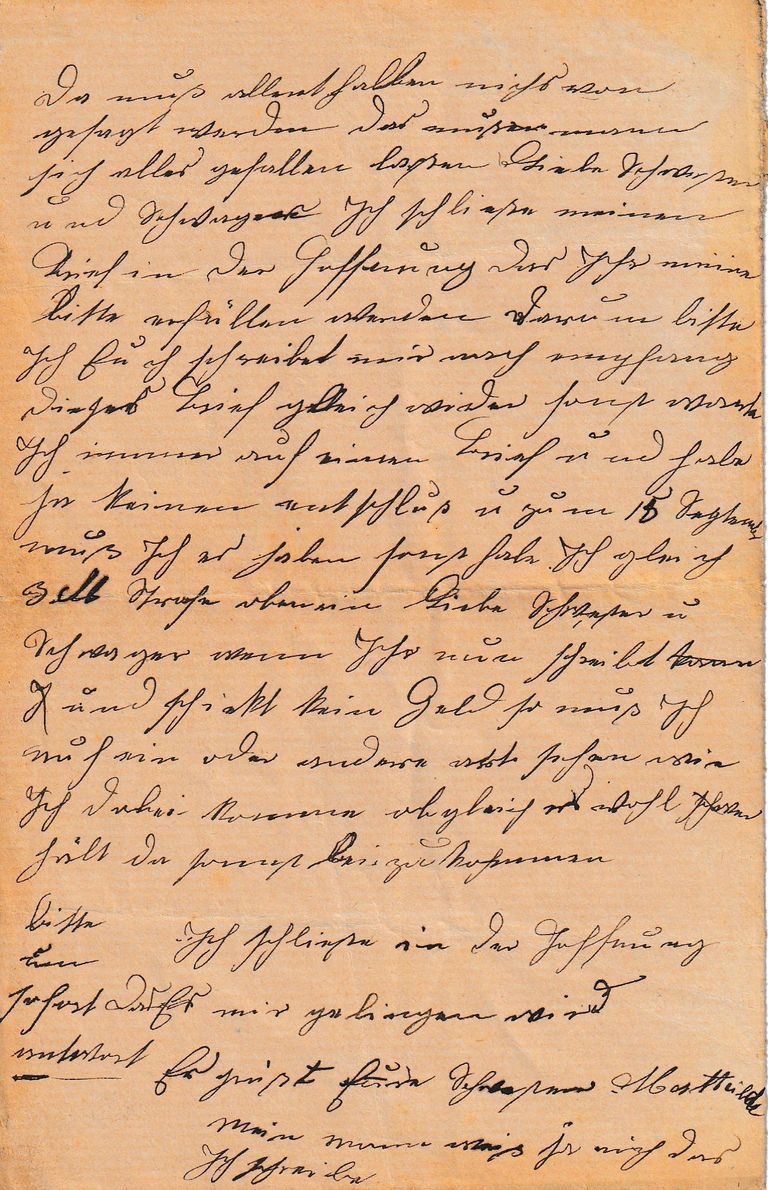 Da muß allenthalben nichs von
gesagt werden das muß mann
sich alles gefallen laßen Liebe Schwester
und Schwager Ich schließe meinen
Brief in der Hoffnung das Ihr meine
Bitte erfüllen werden darum bitte
Ich Euch schreibet mir nach empfang
dieses Brief gleich wider sonst warte
Ich immer auf einen Brief und habe
ja keinen entschluß u zum 15 Septemb
muß Ich es haben sonst habe Ich gleich
Strafe obenein Liebe Schwester u
Schwager wenn Ihr nun schreibt kann
und schickt kein Geld so muß Ich
auf ein oder andere art sehen wie
Ich dabei komme obgleich es wohl schwer
hält da sonst bei zu kommen
Ich schließe in der Hoffnung
das Es mir gelingen wird
Es grüßt Eure Schwester Matthilde
mein mann weiß ja nich das
Ich schreibe
bitte
um
sofort
antwort